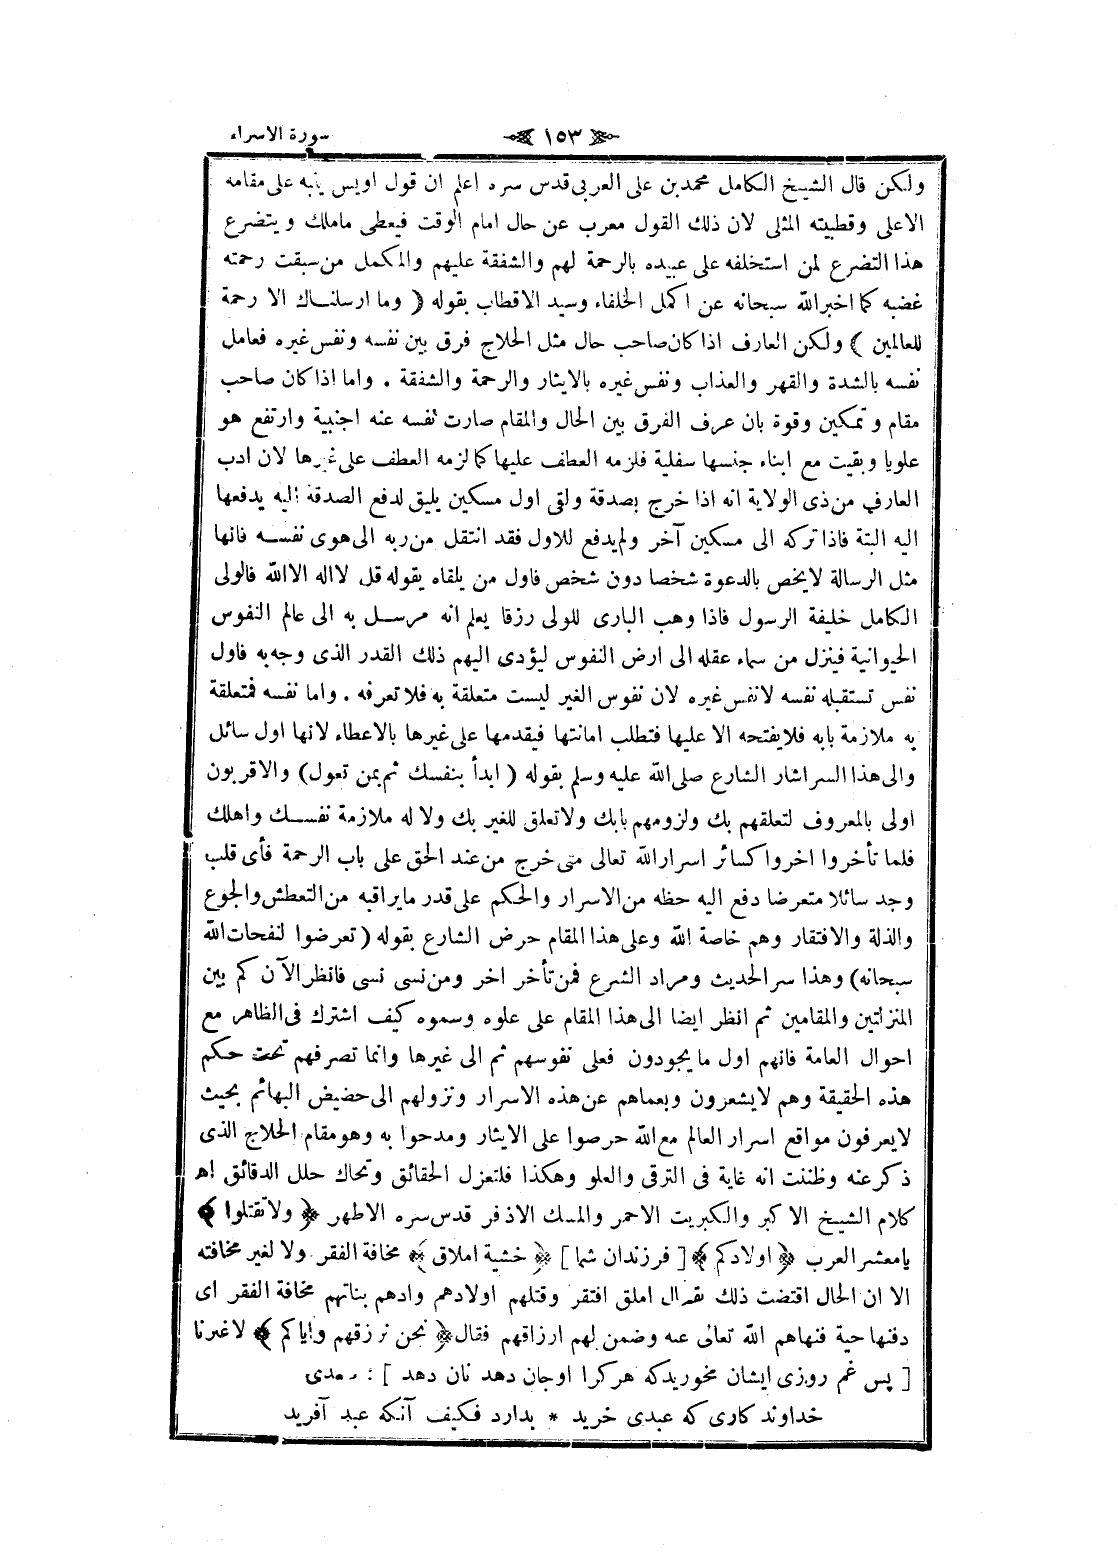 سورة الاسراء
١٥٣
ولكن قال الشيخ الكامل محمد بن على العربى قدس سره اعلم ان قول اويس ينبه على مقامه
الاعلى وقطبيته المثلى لان ذلك القول معرب عن حال امام الوقت فيعطى ماملك ويتضرع
هذا التضرع لمن استخلفه على عبيده بالرحمة لهم والشفقة عليهم والمكمل من سبقت رحمته
غضبه كما اخبر الله سبحانه عن اكمل الخلفاء وسيد الاقطاب بقوله ( وما ارسلناك الا رحمة
للعالمين ) ولكن العارف اذا كان صاحب حال مثل الحلاج فرق بين نفسه ونفس غيره فعامل
نفسه بالشدة والقهر والعذاب ونفس غيره بالايثار والرحمة والشفقة . واما اذا كان صاحب
مقام وتمكين وقوة بان عرف الفرق بين الحال والمقام صارت نفسه عنه اجنبية وارتفع هو
علويا وبقيت مع ابناء جنسها سفلية فلزمه العطف عليها كما لزمه العطف على غيرها لان ادب
العارف من ذى الولاية انه اذا خرج بصدقة ولقى اول مسكين يليق لدفع الصدقة اليه يدفعها
اليه البتة فاذا تركه الى مسكين آخر ولم يدفع للاول فقد انتقل من ربه الى هوى نفسه فانها
مثل الرسالة لايخص بالدعوة شخصا دون شخص فاول من يلقاه يقول له قل لااله الاالله فالولى
الكامل خليفة الرسول فاذا وهب البارى للولى رزقا يعلم انه مرسل به الى عالم النفوس
الحيوانية فينزل من سماء عقله الى ارض النفوس ليؤدى اليهم ذلك القدر الذى وجه به فاول
نفس تستقبله نفسه لانفس غيره لان نفوس الغير ليست متعلقة به فلا تعرفه . واما نفسه فمتعلقة
به ملازمة بابه فلايفتحه الا عليها فتطلب امانتها فيقدمها على غيرها بالاعطاء لانها اول سائل
والى هذا السر اشار الشارع صلى الله عليه وسلم بقوله ( ابدأ بنفسك ثم بمن تعول ) والاقربون
اولى بالمعروف لتعلقهم بك ولزومهم بابك ولاتعلق للغير بك ولا له ملازمة نفسك واهلك
فلما تأخروا اخروا كسائر اسرار الله تعالى متى خرج من عند الحق على باب الرحمة فأى قلب
وجد سائلا متعرضا دفع اليه حظه من الاسرار والحكم على قدر مايراقبه من التعطش والجوع
والذلة والافتقار وهم خاصة الله وعلى هذا المقام حرض الشارع بقوله ( تعرضوا لنفحات الله
سبحانه ) وهذا سر الحديث ومراد الشرع فمن تأخر اخر ومن نسى نسى فانظر الآن كم بين
المنزلتين والمقامين ثم انظر ايضا الى هذا المقام على علوه وسموه كيف اشترك فى الظاهر مع
احوال العامة فانهم اول ما يجودون فعلى نفوسهم ثم الى غيرها وانما تصرفهم تحت حكم
هذه الحقيقة وهم لايشعرون وبعماهم عن هذه الاسرار ونزولهم الى حضيض البهائم بحيث
لايعرفون مواقع اسرار العالم مع الله حرصوا على الايثار ومدحوا به وهو مقام الحلاج الذى
ذكر عنه وظننت انه غاية فى الترقى والعلو وهكذا فلتعزل الحقائق وتحاك حلل الدقائق اه
كلام الشيخ الاكبر والكبريت الاحمر والمسك الاذفر قدس سره الاطهر ﴿ ولاتقتلوا ﴾
يامعشر العرب ﴿ اولادكم ﴾ [ فرزندان شما ] ﴿ خشية املاق ﴾ مخافة الفقر ولا لغير مخافته
الا ان الحال اقتضت ذلك يقال املق افتقر وقتلهم اولادهم وادهم بناتهم مخافة الفقر اى
دفنها حية فنهاهم الله تعالى عنه وضمن لهم ارزاقهم فقال ﴿ نحن نرزقهم واياكم ﴾ لاغيرنا
[ پس غم روزى ايشان مخوريدكه هركرا اوجان دهد نان دهد ] : سعدى
خداوند كارى كه عبدى خريد * بدارد فكيف آنكه عبد آفريد